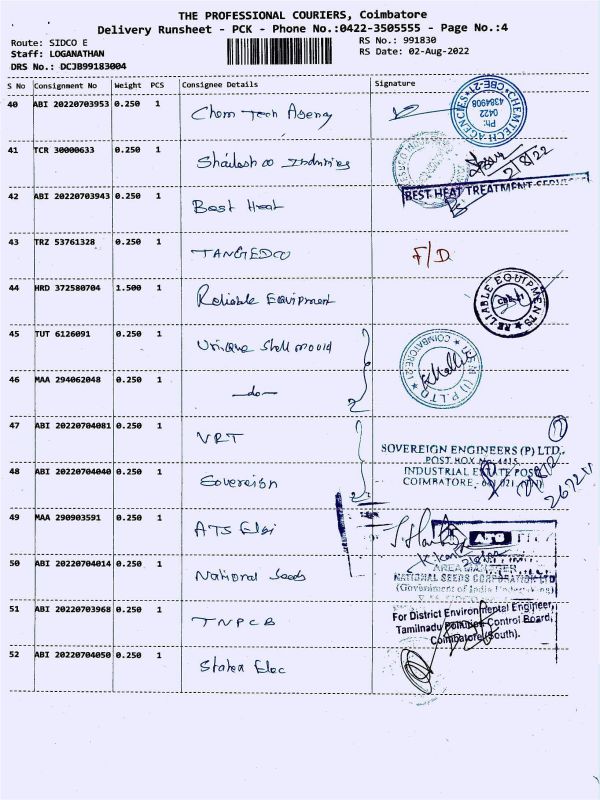 THE PROFESSIONAL COURIERS, Coimbatore
Delivery Runsheet - PCK - Phone No.:0422-3505555 - Page No.:4
Route: SIDCO E
RS No.: 991830
Staff: LOGANATHAN
RS Date: 02-Aug-2022
DRS No.: DCJB99183004
S No Consignment No Weight PCS Consignee Details Signature
40 ABI 20220703953 0.250 1 Chem Tech Agency
CHEMTECH AGENCIES CBE-21 Ph: 0422 4384908
41 TCR 30000633 0.250 1 Industries
2/8/22
BEST HEAT TREATMENT SERVICES
42 ABI 20220703943 0.250 1 Best Heat
43 TRZ 53761328 0.250 1 TANGEDCO F/D
44 HRD 372580704 1.500 1 Reliable Equipment
RELIABLE EQUIPMENTS
45 TUT 6126091 0.250 1 Unique Shell mould
COIMBATORE-21
46 MAA 294062048 0.250 1 -do-
47 ABI 20220704081 0.250 1 VRT
SOVEREIGN ENGINEERS (P) LTD.,
POST BOX No
48 ABI 20220704040 0.250 1 Sovereign
INDUSTRIAL ESTATE POST
COIMBATORE
49 MAA 290903591 0.250 1 ATS Elgi
50 ABI 20220704014 0.250 1 National Seeds
AREA MANAGER
NATIONAL SEEDS CORPORATION LTD
(Government of India Undertaking)
51 ABI 20220703968 0.250 1 TNPCB
For District Environmental Engineer,
Tamilnadu Pollution Control Board,
Coimbatore (South).
52 ABI 20220704050 0.250 1 Elec